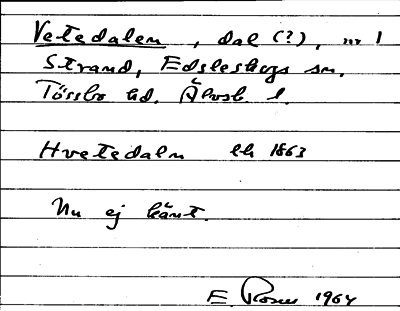 Vetedalen, dal (?), nr 1
Strand, Edsleskogs sn.
Tössbo hd. Älvsb. l.
Hvetedaln lk 1863
Nu ej känt.
E. Rosen 1964